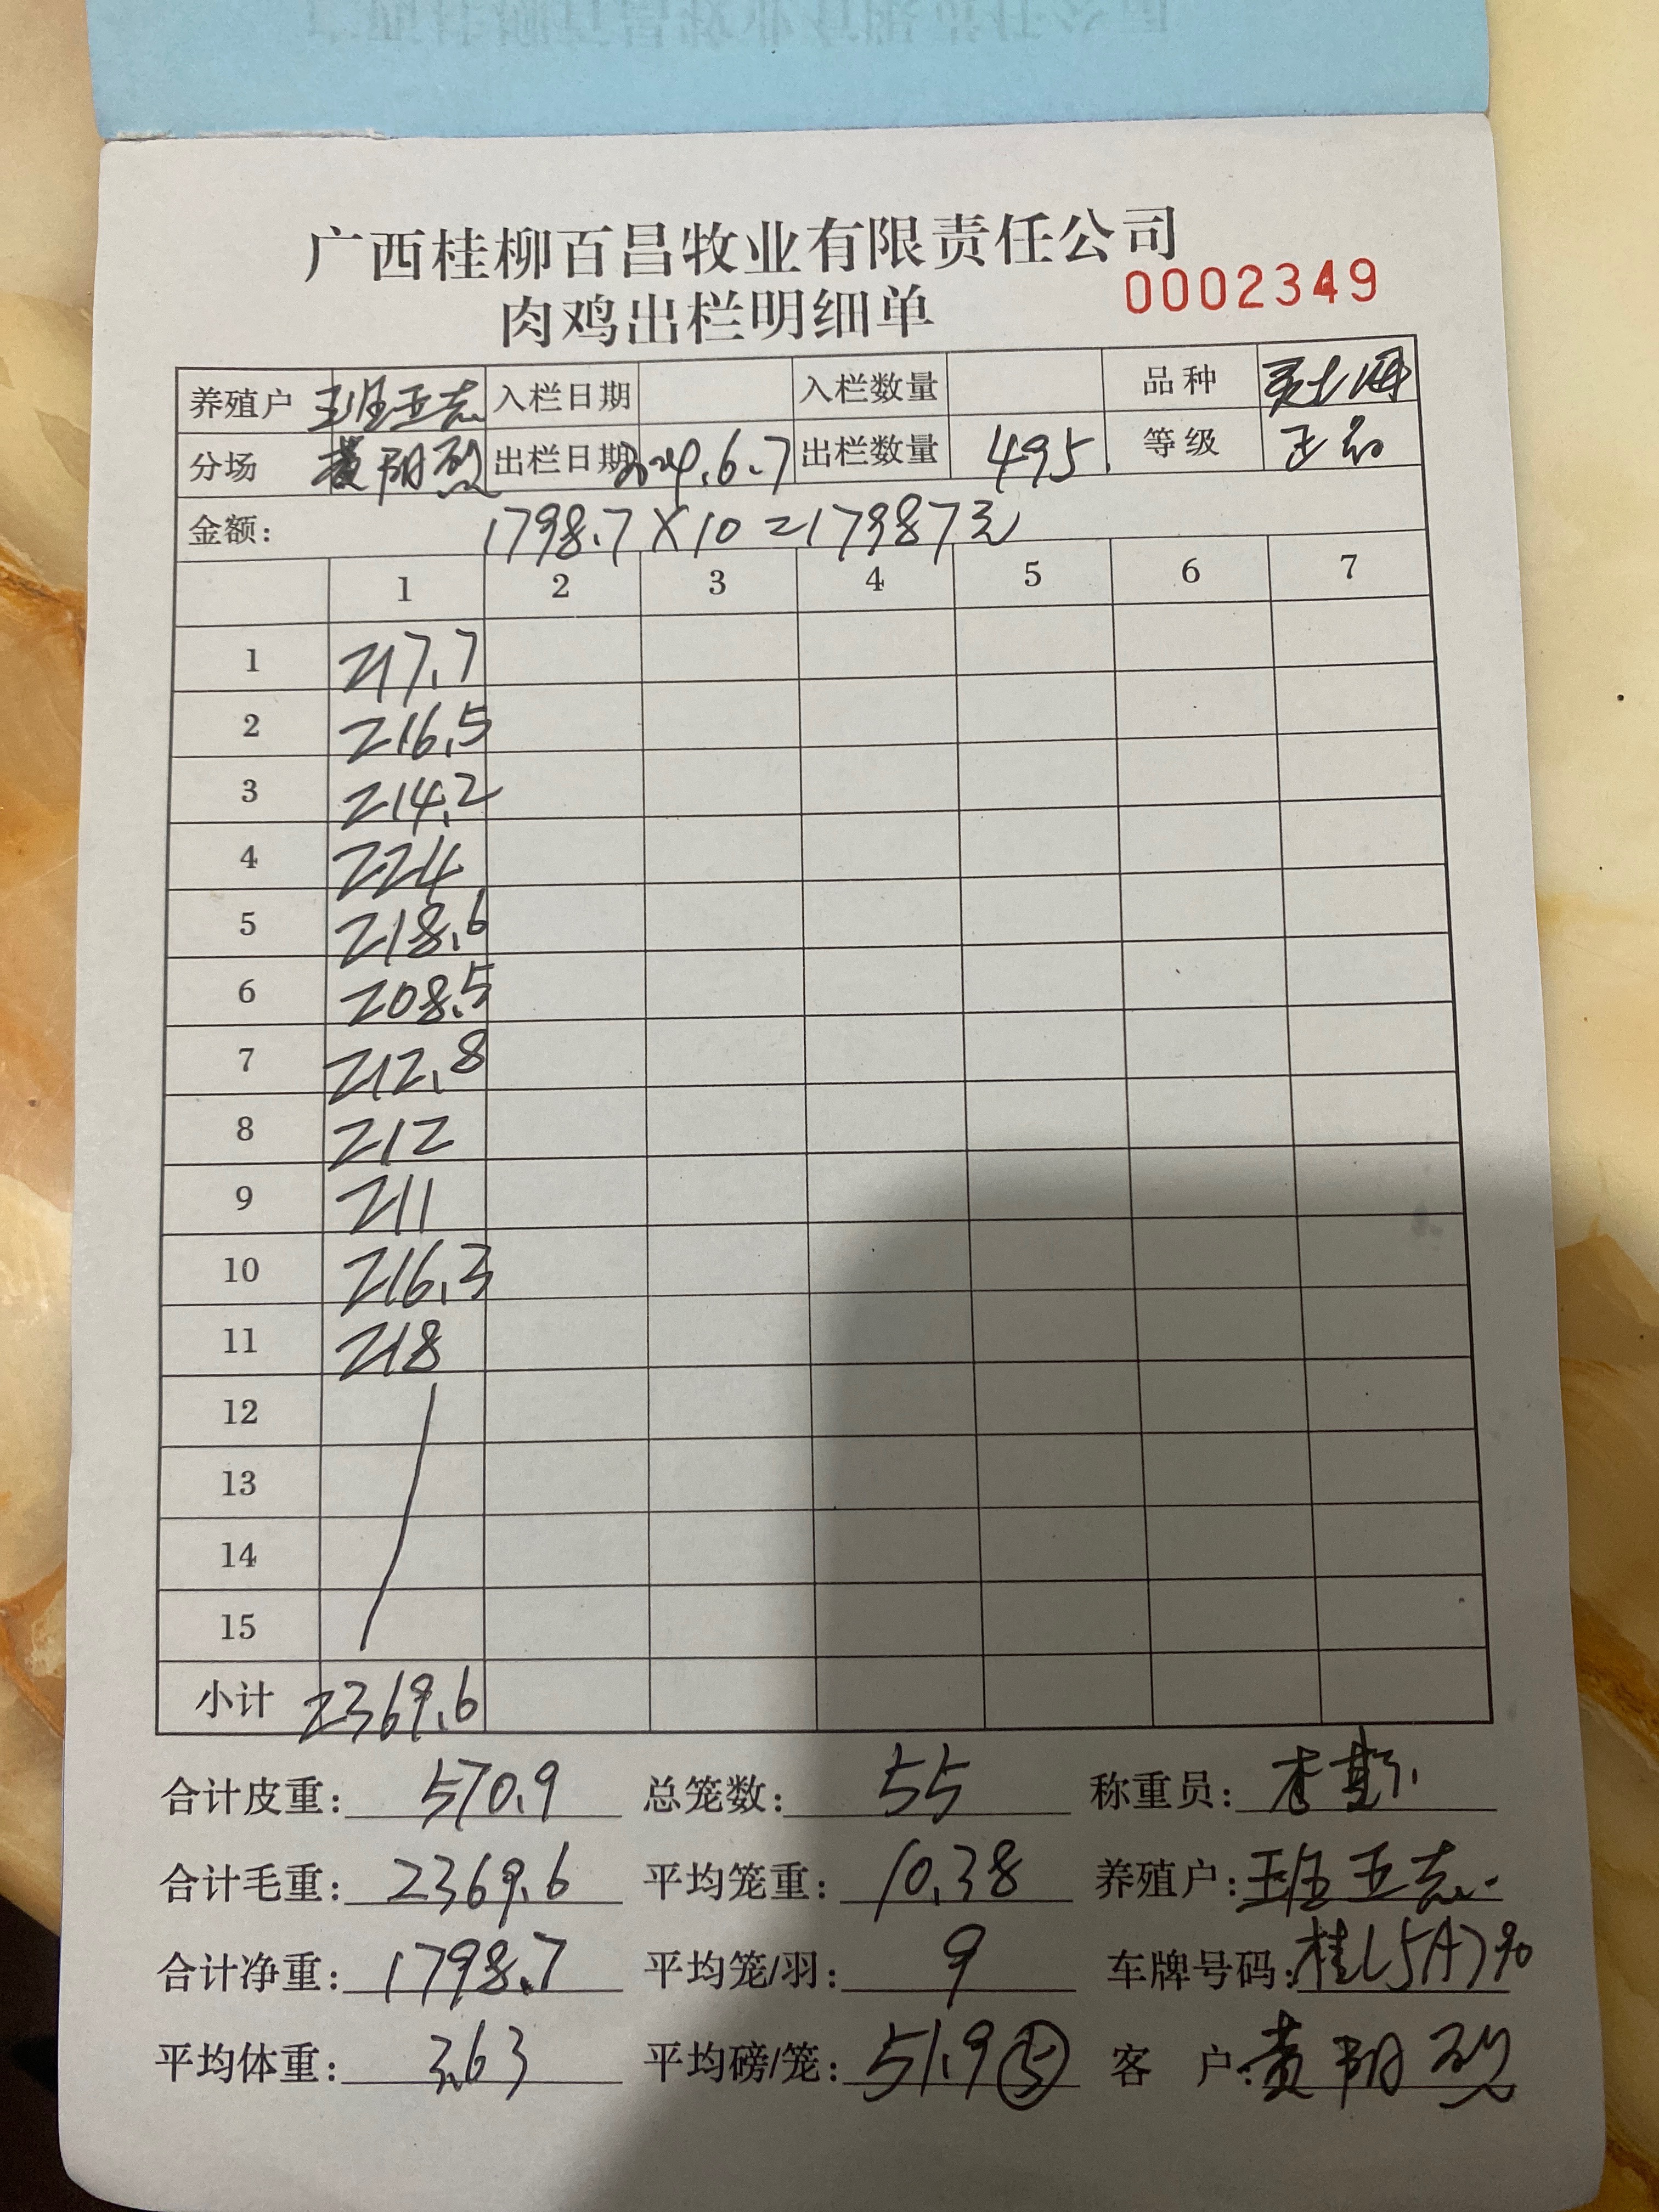 广西桂柳百昌牧业有限责任公司
肉鸡出栏明细单 0002349
养殖户 班亚志 入栏日期 入栏数量 品种
分场 黄阳烈 出栏日期 2024.6.7 出栏数量 495 等级 正品
金额: 1798.7×10=17987元
1 2 3 4 5 6 7
1 217.7
2 216.5
3 214.2
4 224
5 218.6
6 208.5
7 212.8
8 212
9 211
10 216.3
11 218
12
13
14
15
小计 2369.6
合计皮重: 570.9 总笼数: 55 称重员:
合计毛重: 2369.6 平均笼重: 10.38 养殖户: 班亚志
合计净重: 1798.7 平均笼/羽: 9 车牌号码: 桂L5A790
平均体重: 3.63 平均磅/笼: 51.9⑤ 客 户: 黄阳烈